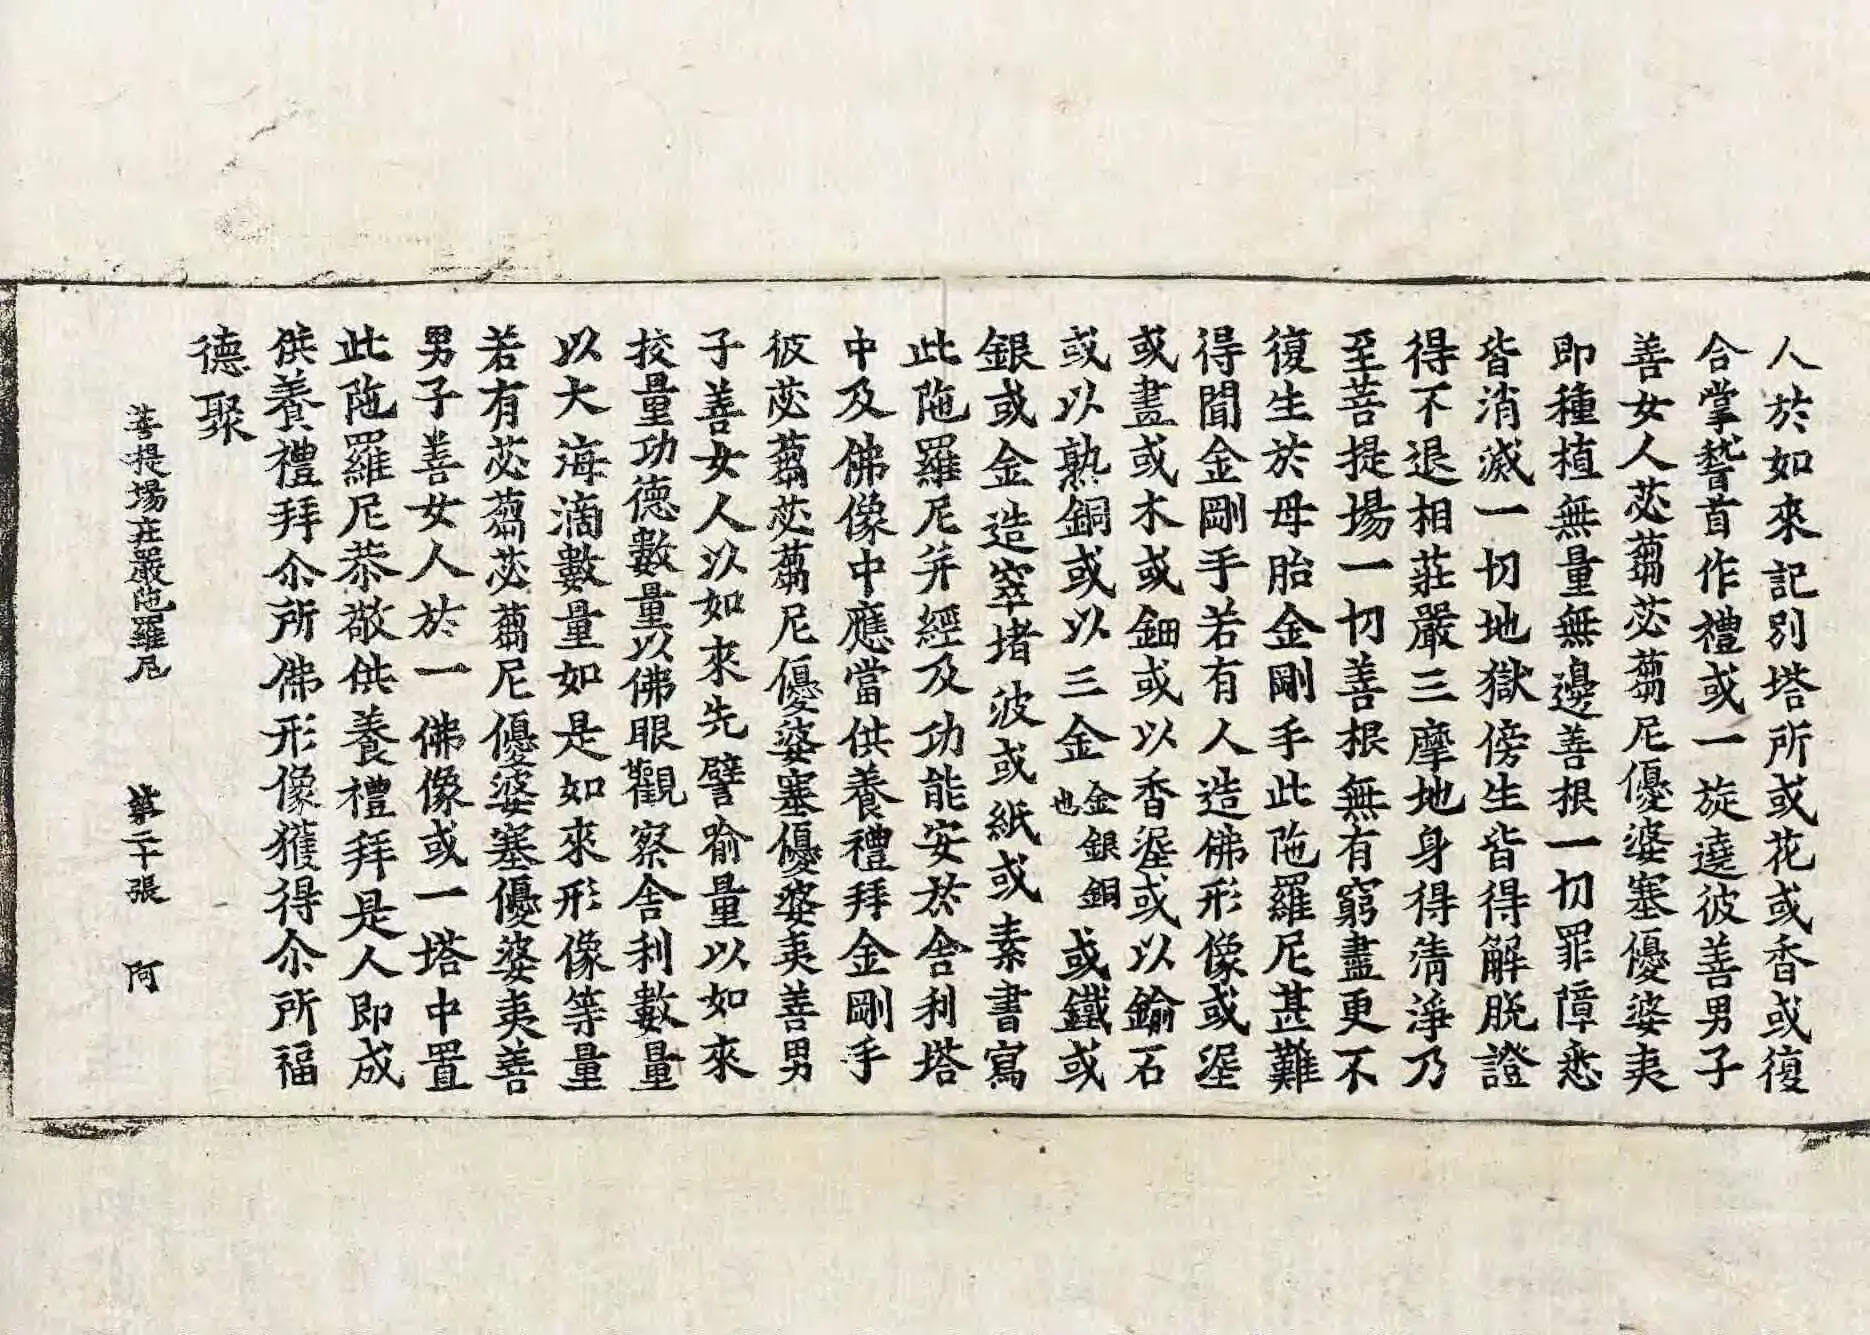 人於如來記別塔所或花或香或復
合掌䭬首作禮或一旋遶彼善男子
善女人苾蒭苾蒭尼優婆塞優婆夷
即種植無量無邊善根一切罪障悉
皆消滅一切地獄傍生皆得解脫證
得不退相莊嚴三摩地身得清淨乃
至菩提場一切善根無有窮盡更不
復生於母胎金剛手此陁羅尼甚難
得聞金剛手若有人造佛形像或埿
或畫或木或鈿或以香埿或以鍮石
或以熟銅或以三金金銀銅也或鐵或
銀或金造窣堵波或紙或素書寫
此陁羅尼并經及功能安於舍利塔
中及佛像中應當供養禮拜金剛手
彼苾蒭苾蒭尼優婆塞優婆夷善男
子善女人以如來先譬喻量以如來
挍量功德數量以佛眼觀察舍利數量
以大海滴數量如是如來形像等量
若有苾蒭苾蒭尼優婆塞優婆夷善
男子善女人於一佛像或一塔中置
此陁羅尼恭敬供養禮拜是人即成
供養禮拜尒所佛形像獲得尒所福
德聚
菩提場莊嚴陁羅尼 第二十張 阿